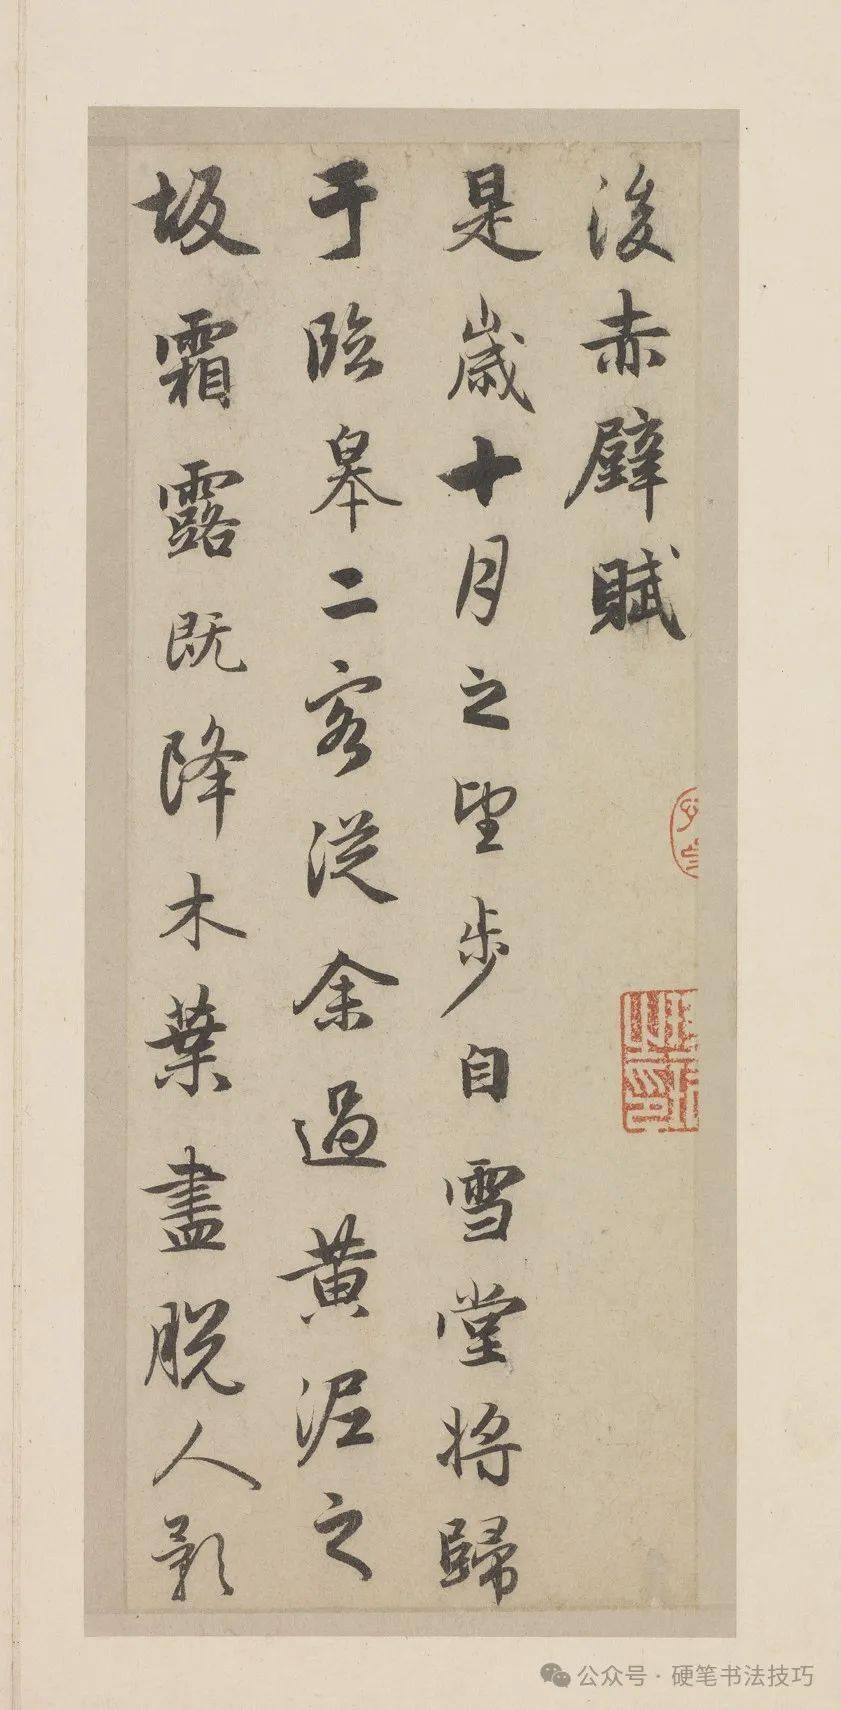 後赤壁賦
是歳十月之望步自雪堂將歸
于臨皋二客從余過黄泥之
坂霜露既降木葉盡脱人影
公众号·硬笔书法技巧